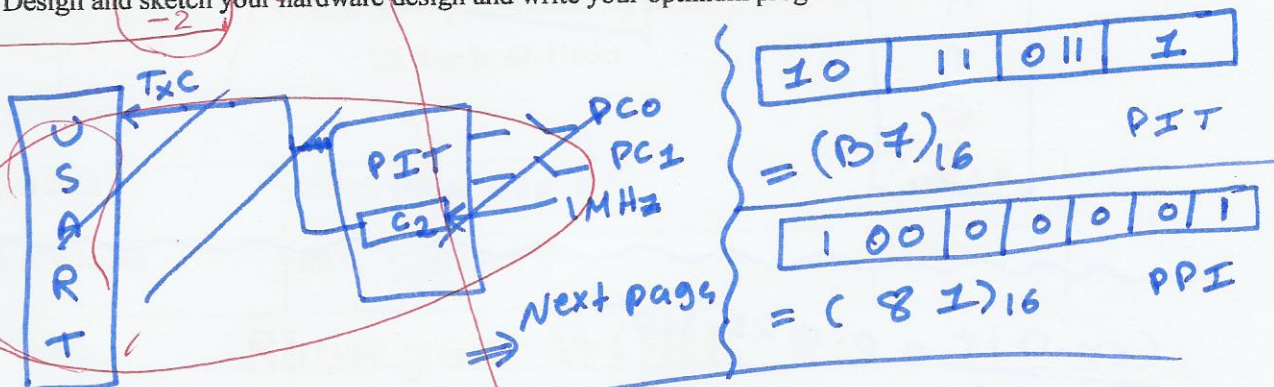 Design and sketch your hardware design and write your optimum
-2
TxC
USART
PIT
C2
PC0
PC1
1MHz
⇒ Next page
10 11 011 1
PIT
= (B7)16
1 00 0 0 0 0 1
PPI
= ( 8 1)16